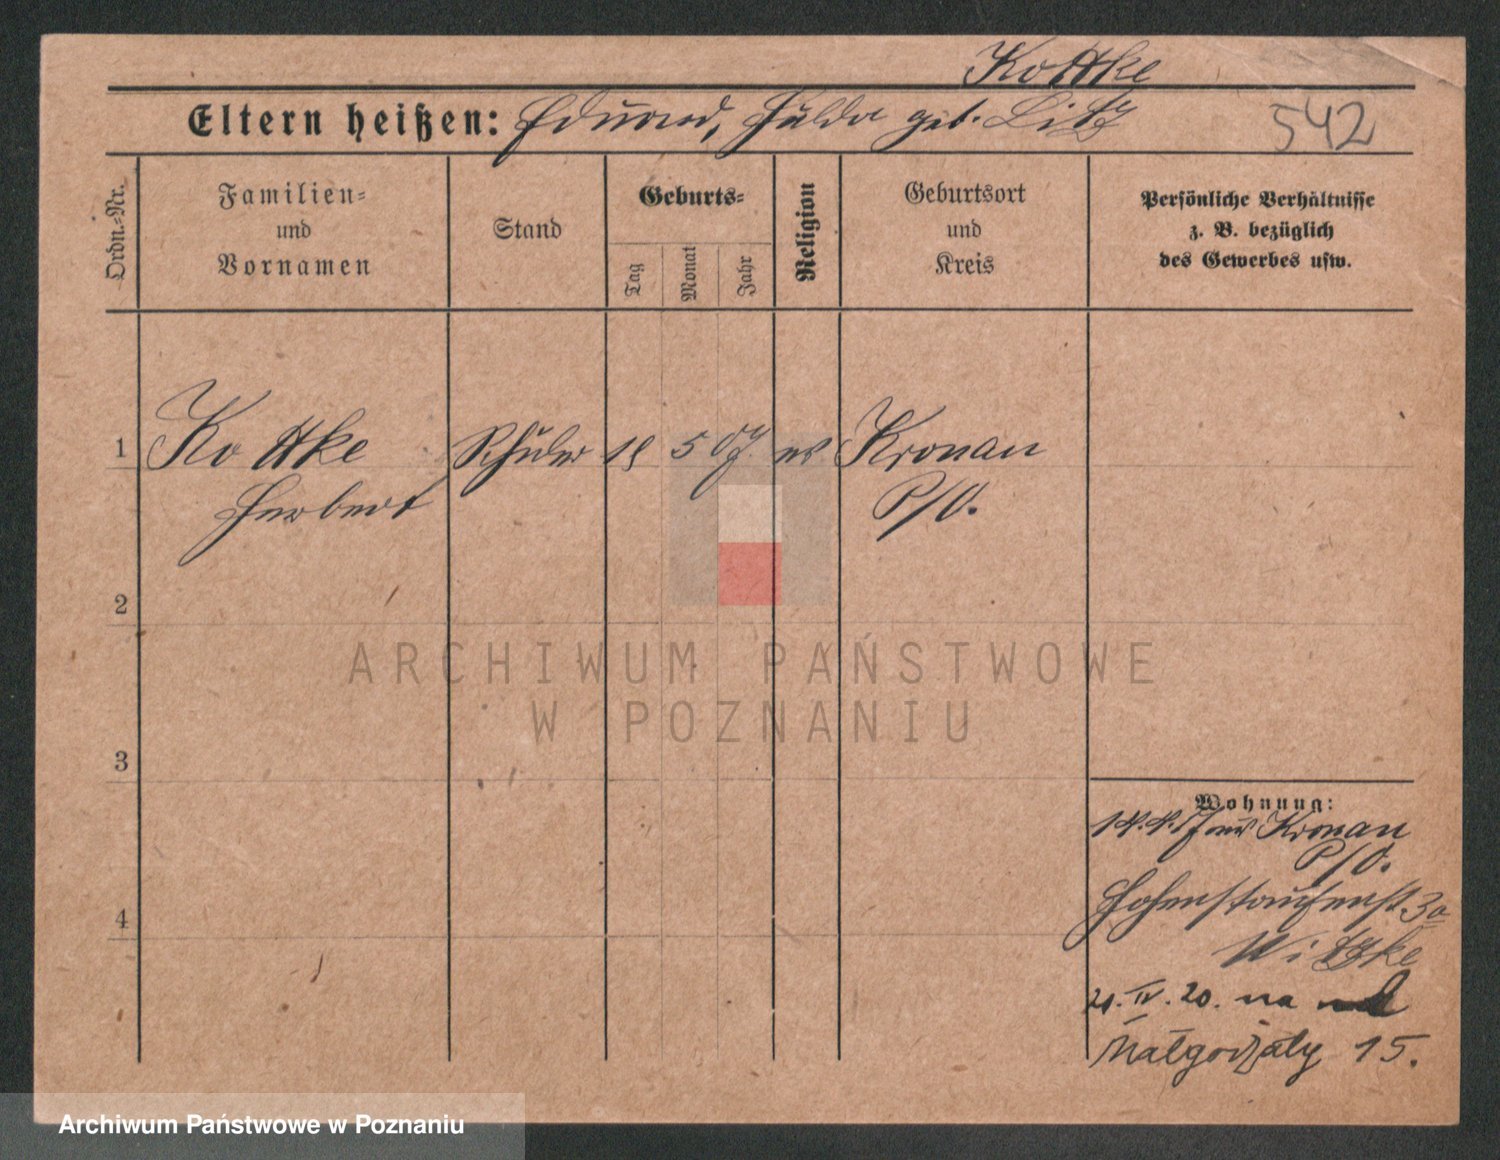 Kottke
Eltern heißen: Eduard, Hulda geb. Litz
542
Ordn.-Nr.
Familien-
und
Vornamen
Stand
Geburts-
Tag
Monat
Jahr
Religion
Geburtsort
und
Kreis
Persönliche Verhältnisse
z. B. bezüglich
des Gewerbes usw.
1 Kottke Schüler 5 07. ev Kronau
Herbert P/O.
2
3
4
Wohnung:
Kronau
P/O.
Hohenstaufenst. 3a
Witzke
21. IV. 20. na
Małgorzaty 15.
ARCHIWUM PAŃSTWOWE
W POZNANIU
Archiwum Państwowe w Poznaniu